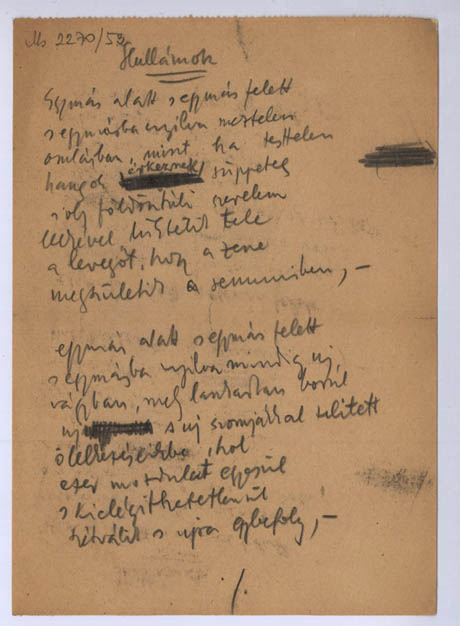 Ms 2270/53
Hullámok
Egymás alatt s egymás felett
s egymásba nyílva meztelen
omlásban, mint ha testtelen
hangok érkeznek süppeteg
s oly földöntúli szerelem
lelkével telve
a levegőt, hogy a zene
megszületik a semmiben, –
egymás alatt s egymás felett
s egymásba nyílva mindig új
vágyban, mely lankadtan borúl
új s új szomjakkal telitett
ölelkezésekbe, hol
ezer mozdulat egyesül
s kielégíthetetlenül
szétválik s újra egybefoly, –